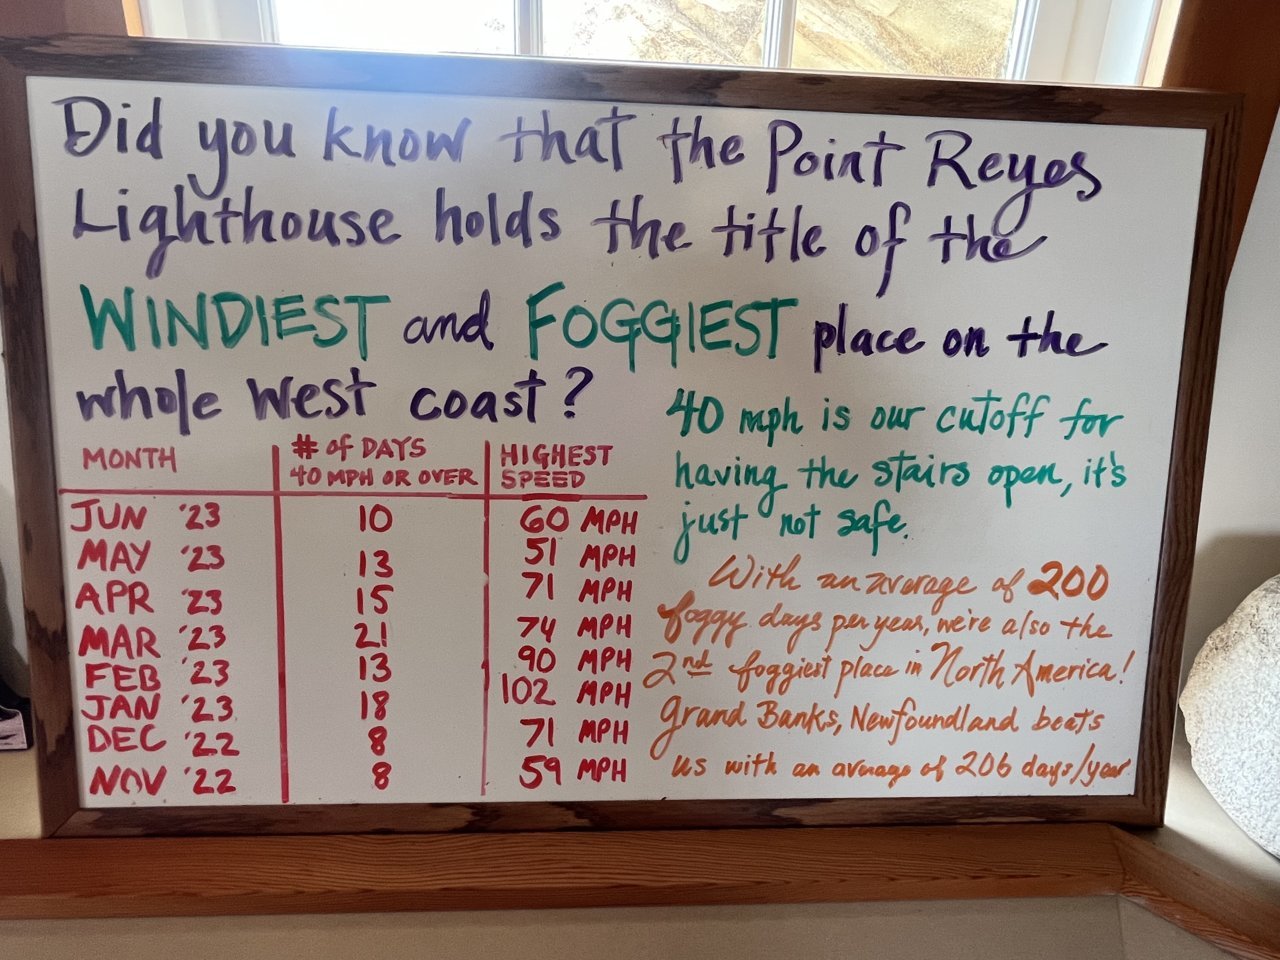 Did you know that the Point Reyes
Lighthouse holds the title of the
WINDIEST and FOGGIEST place on the
whole West coast?
MONTH # of DAYS 40 MPH OR OVER HIGHEST SPEED
JUN '23 10 60 MPH
MAY '23 13 51 MPH
APR '23 15 71 MPH
MAR '23 21 74 MPH
FEB '23 13 90 MPH
JAN '23 18 102 MPH
DEC '22 8 71 MPH
NOV '22 8 59 MPH
40 mph is our cutoff for
having the stairs open, it's
just not safe.
With an average of 200
foggy days per year, we're also the
2nd foggiest place in North America!
Grand Banks, Newfoundland beats
us with an average of 206 days/year